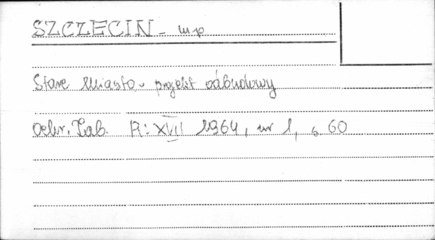 SZCZECIN - wp
Stare Miasto - projekt odbudowy
Ochr. Zab. R: XVII 1964, nr 1, s. 60